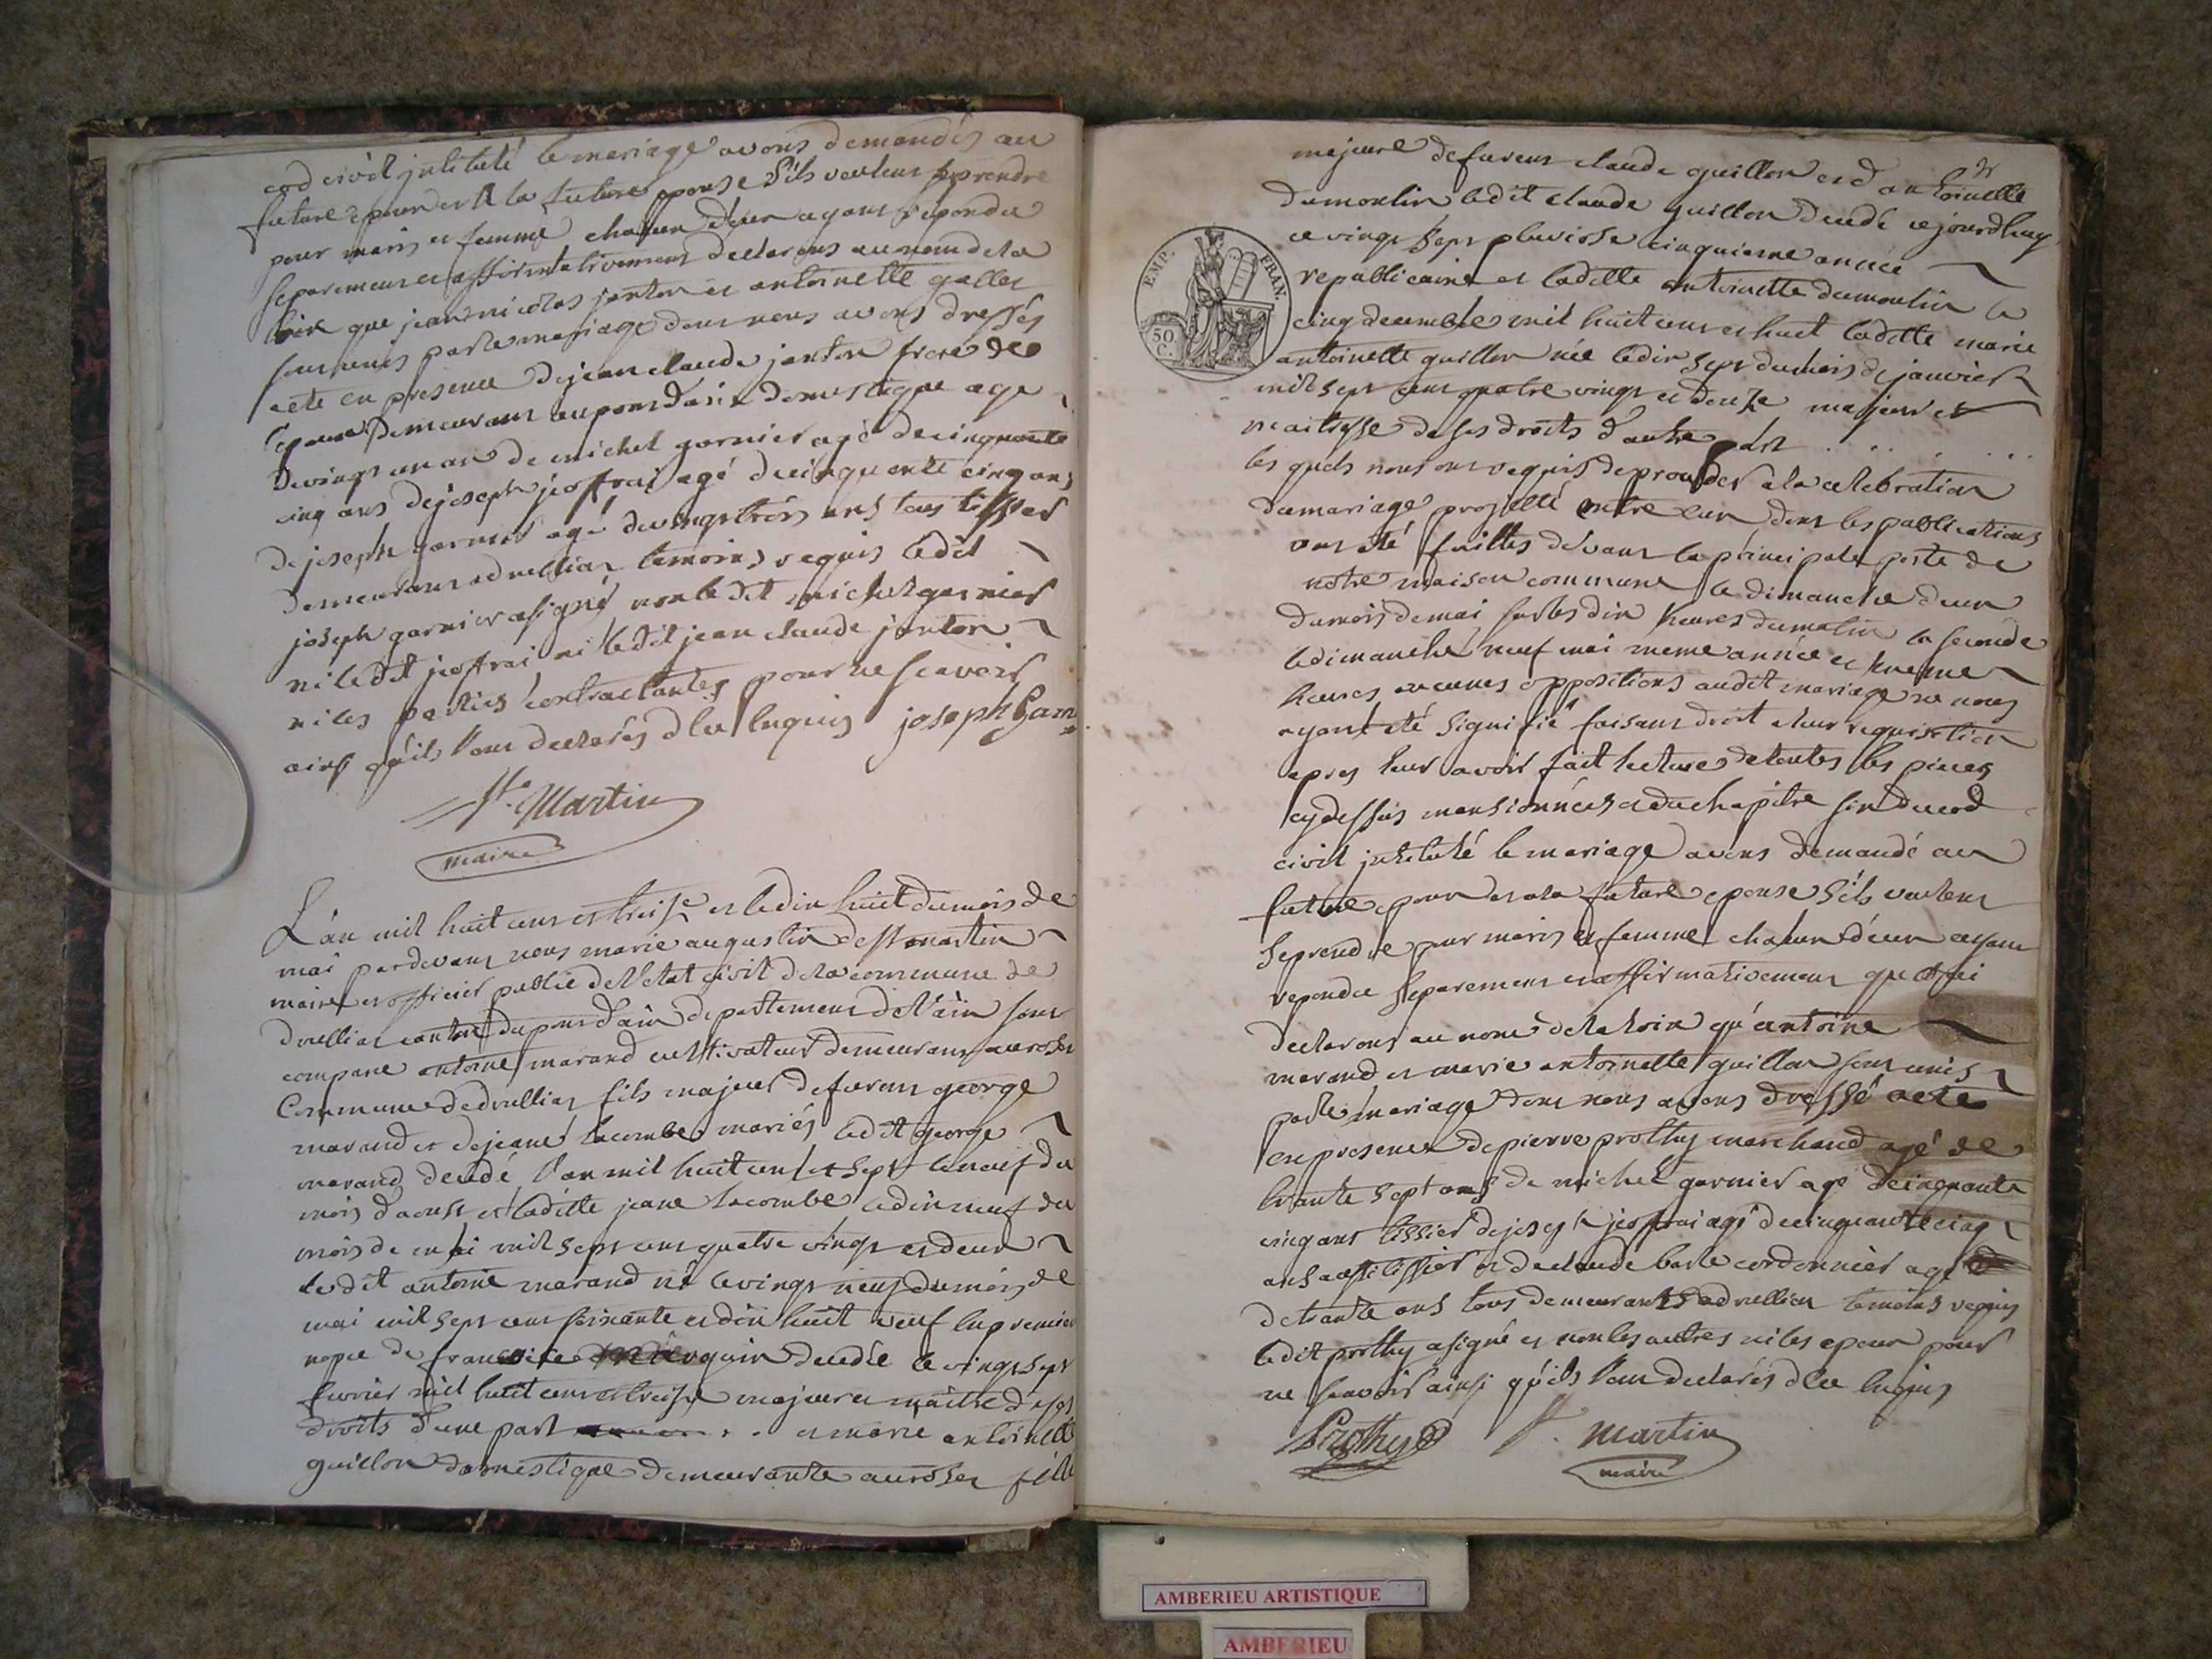 cod civil jntitulé le mariage avons demandés au
future epoux et a la future epouse s'ils veulent se prendre
pour maris et femme chacun d'eux ayant repondu
separement et affirmativement declarons au nom de la
loix que jean nicolas janton et antoinette gallet
sont unis par le mariage dont nous avons dressés
acte en presence de jean claude janton frere de
l'epoux demeurant au pont d'ain domestique age
de vingt un an de michel garnier agé de cinquante
cinq ans de joseph jeoffrai agé de cinquante cinq ans
de joseph garnier agé de vingt trois ans tous tissier
demeurant a druillias temoins requis ledit
joseph garnier a signé non ledit michel garnier
ni ledit jeoffrai ni ledit jean claude janton
ni les parties contractantes pour ne scavoir
ainsi qu'ils l'ont declarés d'eu enquis joseph Garn
St. Martin
maire
L'an mil huit cent et treize et le dix huit du mois de
mai pardevant nous marie augustin de st martin
maire et officier public de l'etat civil de la commune de
druillias canton du pont d'ain departement de l'ain sont
comparu antoine marand cultivateur demeurant au rosset
Commune de druillias fils majeur de furent george
marand et de jeane lacombe mariés ledit george
marand decedé l'an mil huit cent et sept le neuf du
mois d'aoust et laditte jeane lacombe le dix neuf du
mois de mai mil sept cent quatre vingt et deux
ledit antoine marand né le vingt neuf du mois de
mai mil sept cent soixante et dix huit veuf en premier
nopce de decedée le vingt sept
fevrier mil huit cent et treize majeur et maitre de ses
droits d'une part et marie antoinette
guillon domestique demeurante au rosset fille
majeure de furent claude guillon et d antoinette
dumoulin ledit claude guillon decedé cejourdhuy
ce vingt sept pluviosse cinquieme année
republicaine et laditte antoinette dumoulin le
cinq decembre mil huit cent et huit laditte marie
antoinette guillon née le dix sept du mois de janvier
mil sept cent quatre vingt et douze majeur et
maitresse de ses droits d'autre part . . . . .
les quels nous ont requis de proceder a la celebration
du mariage projetté entre eux dont les publications
ont été faittes devant la principale porte de
notre maison commune le dimanche deux
du mois de mai sur les dix heures du matin la seconde
le dimanche neuf mai meme année et meme
heures aucunes oppositions audit mariage ne nous
ayant été signifié faisant droit a leur requisition
apres leur avoir fait lecture de toutes les pieces
cydessus mensionnées et du chapitre six du cod
civil jntitulé le mariage avons demandé au
future epoux et a la future epouse s'ils veulent
se prendre pour maris et femme chacun d'eux ayant
repondu separement et affirmativement que oui
declarons au nom de la loix qu'antoine
marand et marie antoinette guillon sont unis
par le mariage dont nous avons dressé acte
en presence de pierre prothy marchand agé de
trante sept ans de michel garnier agé de cinquante
cinq ans tissier de joseph jeoffrai agé de cinquante cinq
ans aussi tissier et de claude cordonnier age
de trante ans tous demeurants a druillias temoins requis
ledit prothy a signé et non les autres ni les epoux pour
ne scavoir ainsi qu'ils l'ont declarés d'eu enquis
Prothy St. Martin
maire
EMP. FRAN.
50 C.
AMBERIEU ARTISTIQUE
AMBERIEU